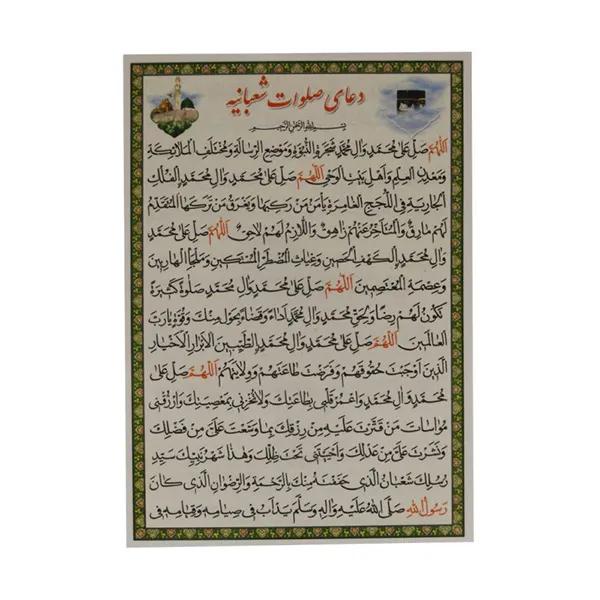 دعای صلوات شعبانیه
بسم الله الرحمن الرحیم
اَللّهُمَّ صَلِّ عَلى مُحَمَّدٍ وَالِ مُحَمَّدٍ شَجَرَةِ النُّبُوَّةِ وَمَوْضِعِ الرِّسالَةِ وَمُخْتَلَفِ الْمَلائِكَةِ
وَمَعْدِنِ الْعِلْمِ وَاَهْلِ بَيْتِ الْوَحْىِ اَللّهُمَّ صَلِّ عَلى مُحَمَّدٍ وَالِ مُحَمَّدٍ الْفُلْكِ
الْجارِيَةِ فِى اللُّجَجِ الْغامِرَةِ يَأْمَنُ مَنْ رَكِبَها وَيَغْرَقُ مَنْ تَرَكَهَا الْمُتَقَدِّمُ
لَهُمْ مارِقٌ وَالْمُتَاَخِّرُ عَنْهُمْ زاهِقٌ وَاللاّزِمُ لَهُمْ لاحِقٌ اَللّهُمَّ صَلِّ عَلى مُحَمَّدٍ
وَالِ مُحَمَّدٍ الْكَهْفِ الْحَصينِ وَغِياثِ الْمُضْطَرِّ الْمُسْتَكينِ وَمَلْجَأِ الْهارِبينَ
وَعِصْمَةِ الْمُعْتَصِمينَ اَللّهُمَّ صَلِّ عَلى مُحَمَّدٍ وَالِ مُحَمَّدٍ صَلوةً كَثيرَةً
تَكُونُ لَهُمْ رِضًا وَلِحَقِّ مُحَمَّدٍ وَالِ مُحَمَّدٍ اَداءً وَقَضاءً بِحَوْلٍ مِنْكَ وَقُوَّةٍ يا رَبَّ
الْعالَمينَ اَللّهُمَّ صَلِّ عَلى مُحَمَّدٍ وَالِ مُحَمَّدٍ الطَّيِّبينَ الاَبْرارِ الاَخْيارِ
الَّذينَ اَوْجَبْتَ حُقُوقَهُمْ وَفَرَضْتَ طاعَتَهُمْ وَوِلايَتَهُمْ اَللّهُمَّ صَلِّ عَلى
مُحَمَّدٍ وَالِ مُحَمَّدٍ وَاعْمُرْ قَلْبى بِطاعَتِكَ وَلاتُخْزِنى بِمَعْصِيَتِكَ وَارْزُقْنى
مُواساتَ مَنْ قَتَّرْتَ عَلَيْهِ مِنْ رِزْقِكَ بِما وَسَّعْتَ عَلَىَّ مِنْ فَضْلِكَ
وَنَشَرْتَ عَلَىَّ مِنْ عَدْلِكَ وَاَحْيَيْتَنى تَحْتَ ظِلِّكَ وَهذا شَهْرُ نَبِيِّكَ سَيِّدِ
رُسُلِكَ شَعْبانُ الَّذى حَفَفْتَهُ مِنْكَ بِالرَّحْمَةِ وَالرِّضْوانِ الَّذى كانَ
رَسُولُ اللهِ صَلَّى اللهُ عَلَيْهِ وَالِهِ وَسَلَّمَ يَدْاَبُ فى صِيامِهِ وَقِيامِهِ فى